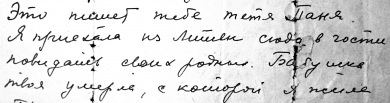 Это пишет тебе тётя Таня.
Я приехала из Литвы сюда в гости
повидать своих родных. Бабушка
твоя умерла, с которой я жила